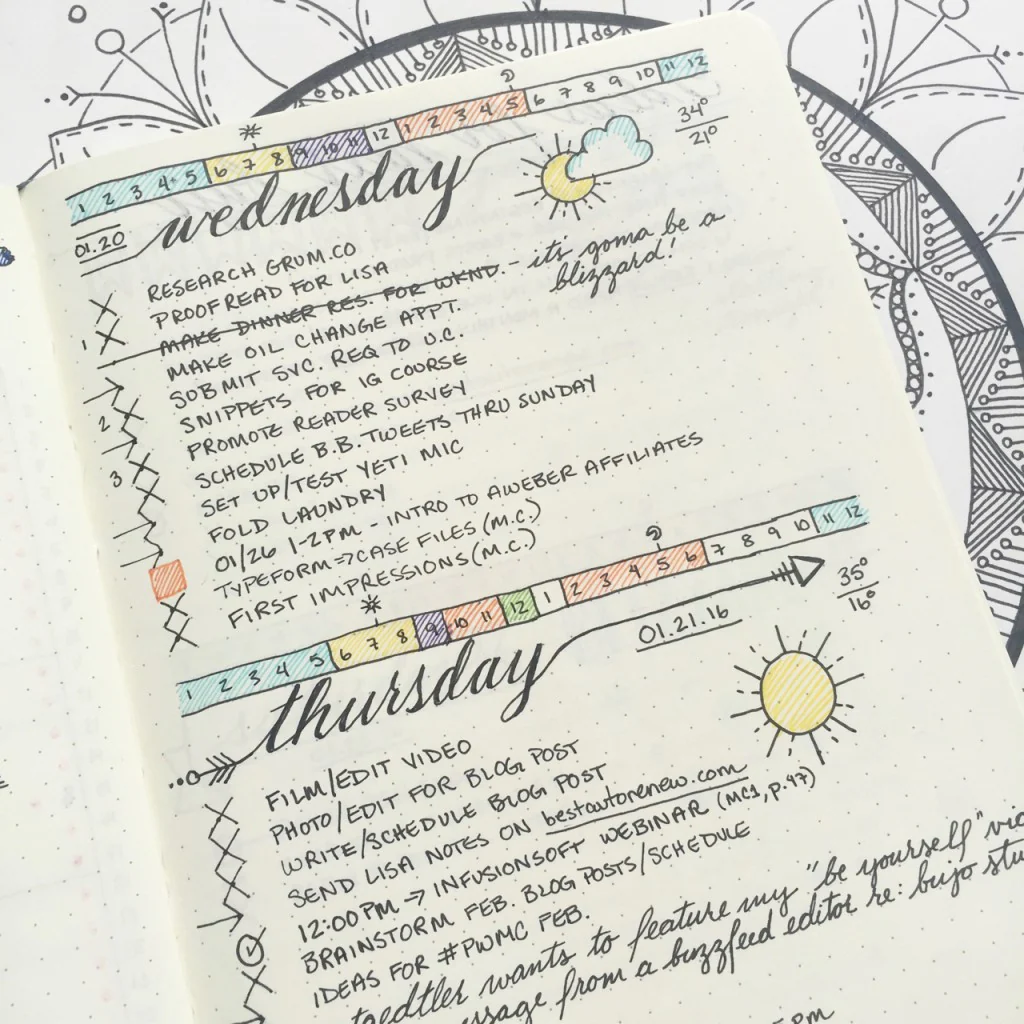 1 2 3 4 5 6 7 8 9 10 11 12 1 2 3 4 5 6 7 8 9 10 11 12
wednesday
34°
21°
01.20
RESEARCH GRUM.CO
PROOFREAD FOR LISA
MAKE DINNER RES. FOR WKND. - it's gonna be a
blizzard!
1 MAKE OIL CHANGE APPT.
SUBMIT SVC. REQ TO U.C.
SNIPPETS FOR IG COURSE
2 PROMOTE READER SURVEY
SCHEDULE B.B. TWEETS THRU SUNDAY
3 SET UP/TEST YETI MIC
FOLD LAUNDRY
01/26 1-2PM - INTRO TO AWEBER AFFILIATES
TYPEFORM => CASE FILES (M.C.)
FIRST IMPRESSIONS (M.C.)
1 2 3 4 5 6 7 8 9 10 11 12 1 2 3 4 5 6 7 8 9 10 11 12
thursday
01.21.16
35°
16°
FILM/EDIT VIDEO
PHOTO/EDIT FOR BLOG POST
WRITE/SCHEDULE BLOG POST
SEND LISA NOTES ON bestautorenew.com
12:00PM → INFUSIONSOFT WEBINAR (MC1, p.47)
BRAINSTORM FEB. BLOG POSTS/SCHEDULE
IDEAS FOR #PWMC FEB.
wants to feature my "be yourself"
from a buzzfeed editor re: bujo